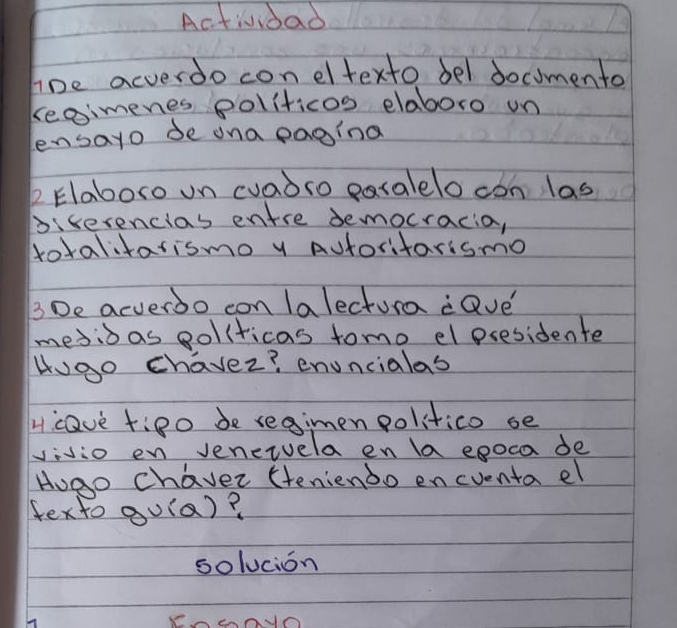 Actividad
1 De acuerdo con el texto del documento
regimenes políticos elaboro un
ensayo de una pagína
2 Elaboro un cuadro paralelo con las
diferencias entre democracia,
totalitarismo y Autoritarismo
3 De acuerdo con la lectura ¿Qué
medidas políticas tomo el presidente
Hugo Chávez? enuncialas
4 ¿Qué tipo de regimen político se
vivio en venezuela en la epoca de
Hugo Chávez (teniendo en cuenta el
texto guía)?
solución
1 Ensayo